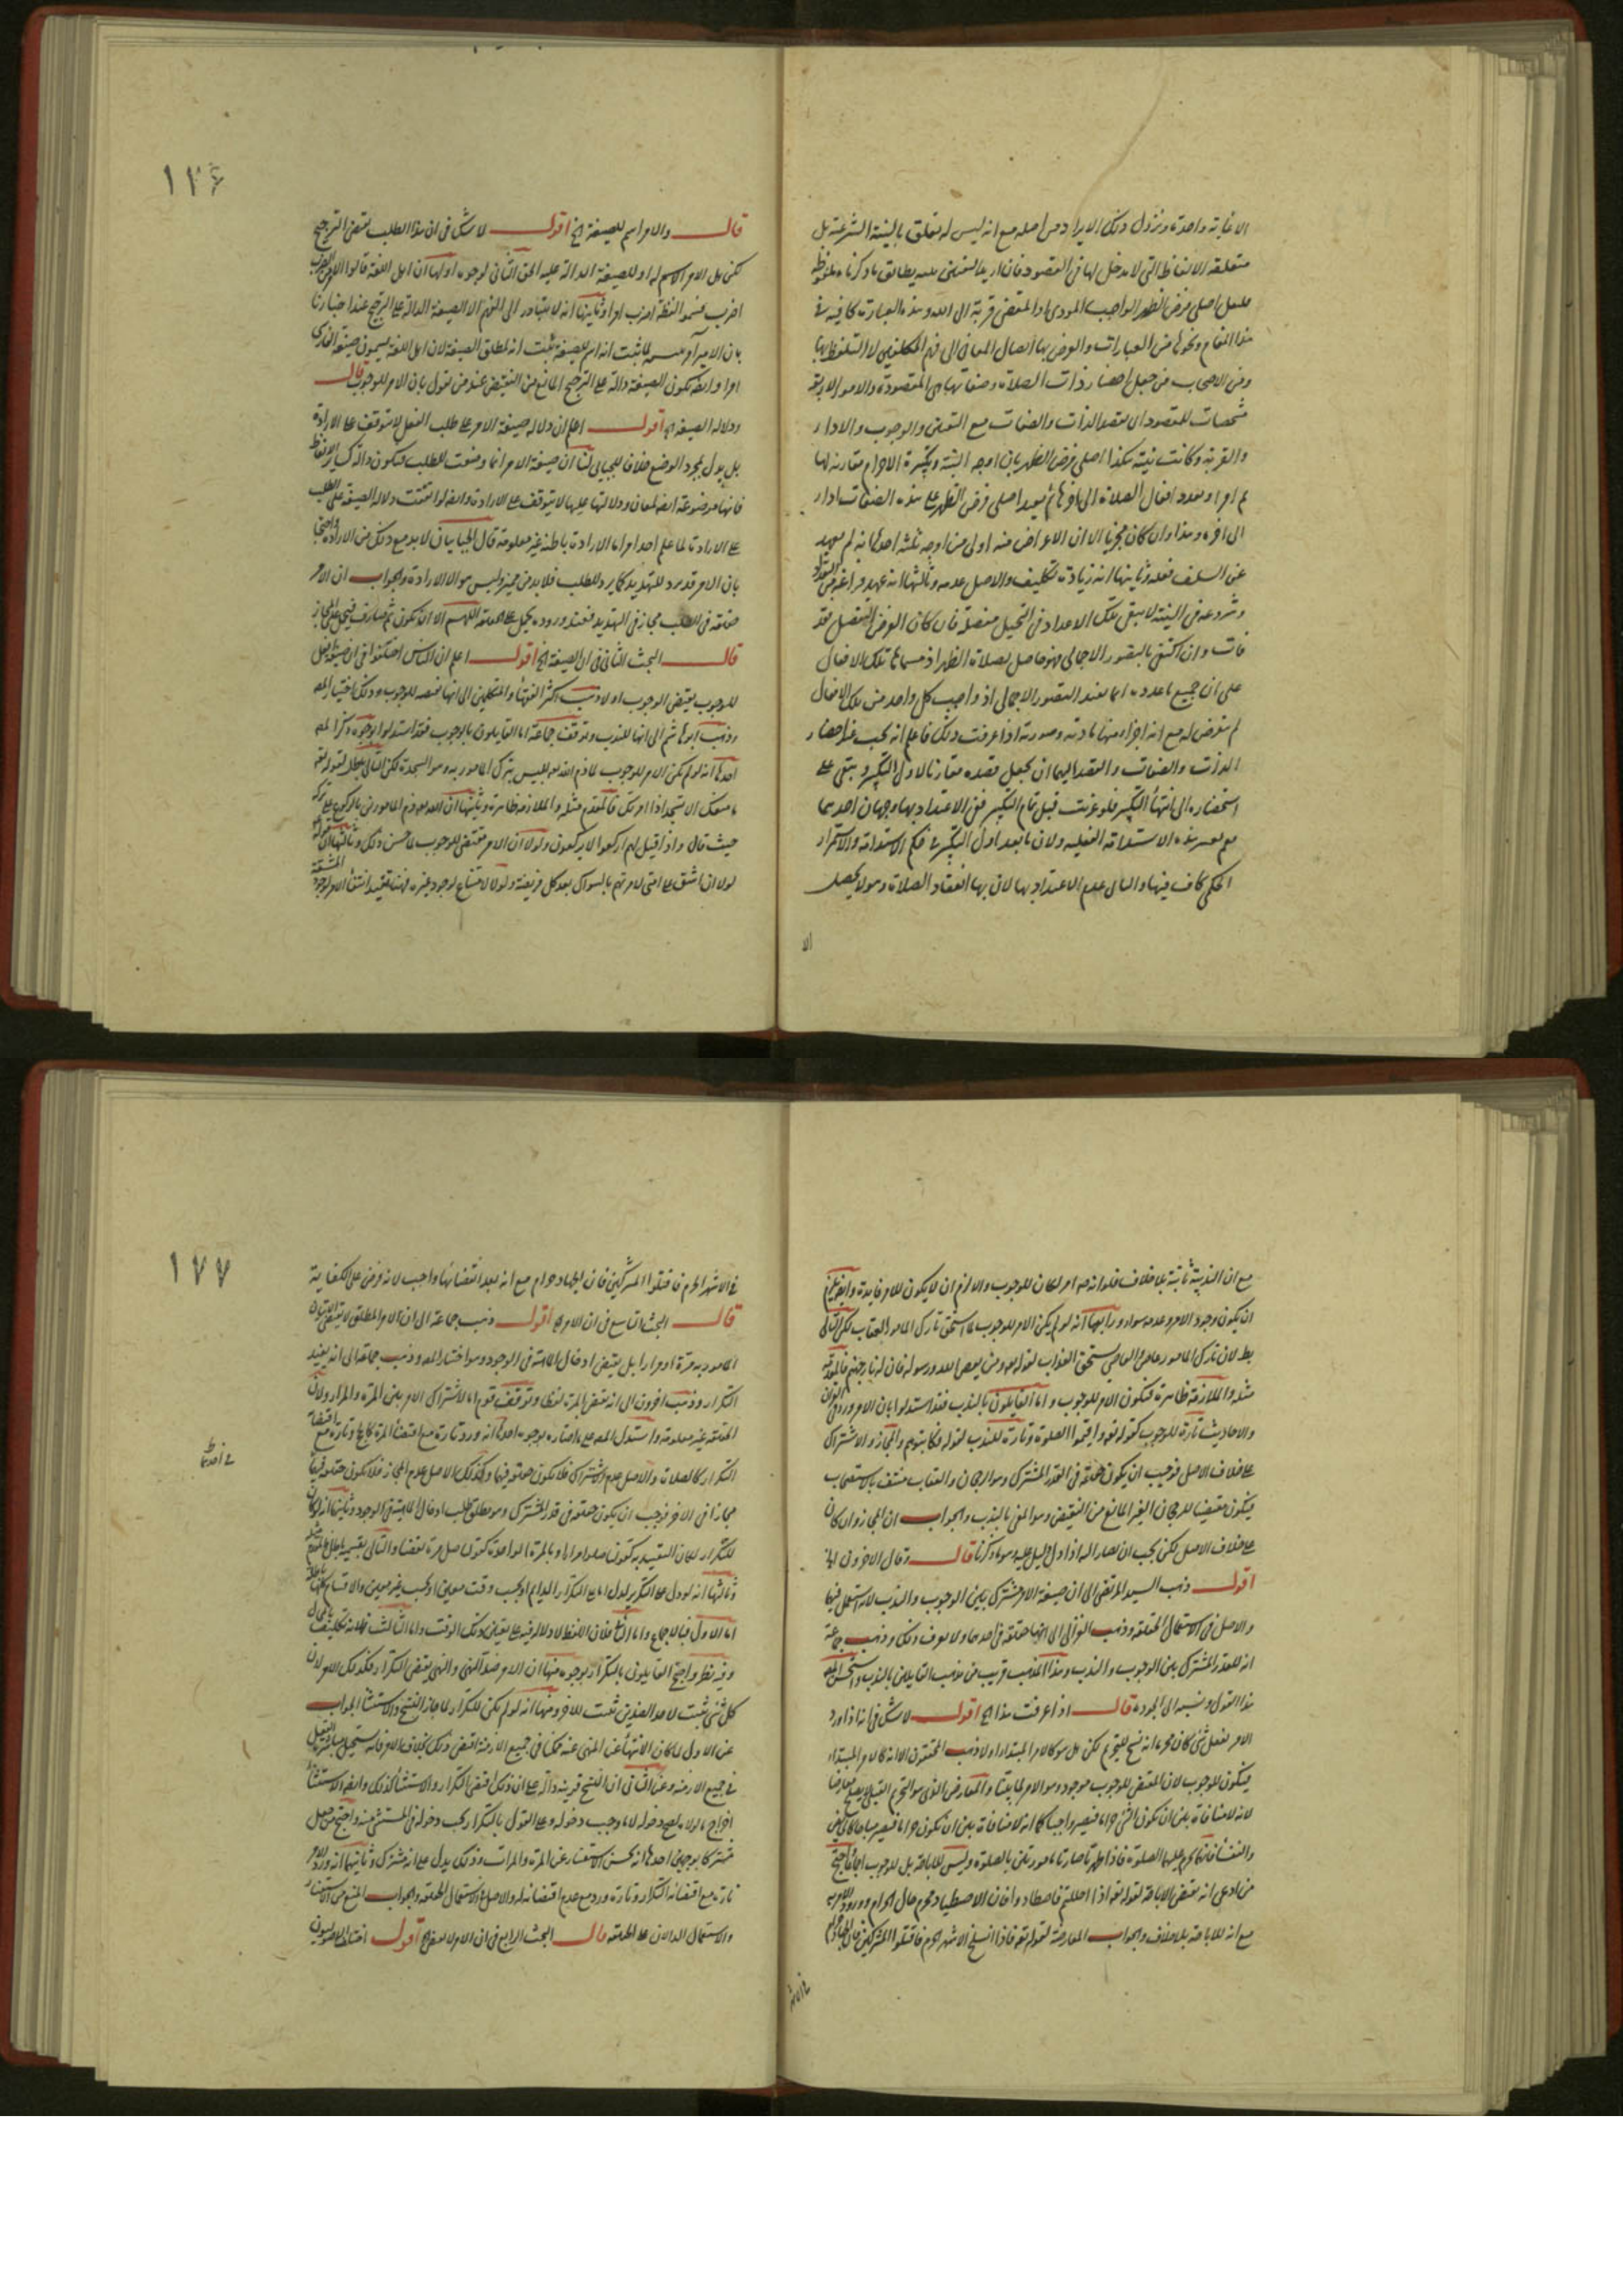 الا نية واحدة ونزول ذلك الايراد من اصله مع انه ليس له تعلق بالنية الشرعية بل
متعلقه الالفاظ التي لا مدخل لها في المقصود فان اريد التفصي عنه بطابق ما ذكرناه
اصلي فرض الظهر الواجب المودي او المقضي قربة الى الله وهذه العبارة كافية في
هذا المقام ونحوها من العبارات والغرض بها ايصال المعاني الى فهم المكلفين لا التلفظ بها
ومن الاصحاب من جعل احضار ذات الصلاة وصفاتها هي المقصودة والامور الاربعة
مشخصات للمقصود اي يقصد الذات والصفات مع التعيين والوجوب والاداء
والقربة وكانت نيته هكذا اصلي فرض الظهر بان اوجد النية وتكبيرة الاحرام مقارنة لها
ثم اقرا ويعدد افعال الصلاة الى اخرها ثم يعيد اصلي فرض الظهر على هذه الصفات اداء
الى اخره وهذا وان كان مجزيا الا ان الاعراض عنه اولى من اوجه ثلثة احدها انه لم يعهد
عن السلف فعله وثانيها انه زيادة تكليف والاصل عدمه وثالثها انه عند فراغه من التعداد
وشروعه في النية لا تبقى تلك الاعداد في التخيل مفصلة فان كان الغرض التفصيل فقد
فات وان اكتفى بالتصور الاجمالي فهو حاصل بصلاة الظهر اذ مسماها تلك الافعال
على ان جميع ما عدده انما يفيد التصور الاجمالي اذ واجب كل واحد من تلك الافعال
لم يتعرض له مع انه اجزاء منها مادته وصورته اذا عرفت ذلك فاعلم انه يجب عند احضار
الذات والصفات والقصد اليها ان يجعل قصده مقارنا لاول التكبير ويبقى على
استحضاره الى انتهاء التكبير فلو عزبت قبل تمام التكبير ففي الاعتداد بها وجهان احدهما
نعم لعسر هذه الاستدامة الفعلية ولان ما بعد اول التكبير في حكم الاستدامة والاستمرار
الحكمي كاف فيها والثاني عدم الاعتداد بها لان بها انعقاد الصلاة وهو لا يحصل
الا
١٧٦
قال والامر اسم للصيغة الخ اقول لا شك في ان هذا الطلب يقتضي الترجيح
لكن هل الامر اسم له او للصيغة الدالة عليه الحق الثاني لوجوه اولها ان اهل اللغة قالوا الامر من الضرب
اضرب فسموا لفظة اضرب امرا وثانيها انه لا يتبادر الى الفهم الا الصيغة الدالة على الترجيح عند اخبارنا
بان الامير امر لما ثبت انه اسم للصيغة ثبت انه لمطلق الصيغة لان اهل اللغة يسمون صيغة الفارسي
امرا وايضا تكون الصيغة دالة على الترجيح المانع من النقيض عند من يقول بان الامر للوجوب قال
ودلالة الصيغة الخ اقول اعلم ان دلالة صيغة الامر على طلب الفعل لا تتوقف على الارادة
بل يدل بمجرد الوضع خلافا للجبائي لنا ان صيغة الامر انما وضعت للطلب فتكون دالة كسائر الالفاظ
فانها موضوعة ايضا لمعان ودلالتها عليها لا يتوقف على الارادة وايضا لو اتفقت دلالة الصيغة على الطلب
على الارادة لما علم احد امرا لان الارادة باطنة غير معلومة قال الجبائيان لا بد مع ذلك من الارادة واحتجا
بان الامر قد يرد للتهديد كما يرد للطلب فلا بد من مميز وليس هو الا الارادة والجواب ان الامر
حقيقة في الطلب مجاز في التهديد فعند وروده يحمل على الحقيقة اللهم الا ان يكون ثم صارف فيحمل على المجاز
قال البحث الثاني في ان الصيغة الخ اقول اعلم ان الناس اختلفوا في ان صيغة افعل
للوجوب يقتضي الوجوب او لا ذهب اكثر الفقهاء والمتكلمين الى انها مقتضية للوجوب وذلك اختيار المص
وذهب ابو هاشم الى انها للندب وتوقف جماعة اما القايلون بالوجوب فقد استدلوا بوجوه ذكرها المص
احدها انه لو لم يكن الامر للوجوب لما ذم الله تع ابليس بترك المامور به وهو السجدة لكن التالي باطل لقوله تع
ما منعك الا تسجد اذ امرتك فالمقدم مثله والملازمة ظاهرة وثانيها ان الله تع ذم المامورين بالركوع على تركه
حيث قال واذا قيل لهم اركعوا لا يركعون ولولا ان الامر مقتضي للوجوب لما حسن ذلك وثالثها قوله
لولا ان اشق على امتي لامرتهم بالسواك بعد كل فريضة ولولا لامتناع لوجود غيره فهنا تفيد انتفاء الامر لوجود
المشقة
مع ان الندبية ثابتة بلا خلاف فلو انه امر لكان للوجوب والا لزم ان لا يكون للامر فايدة
ان يكون وجود الامر وعدمه سواء ورابعها انه لو لم يكن الامر للوجوب لما استحق تارك المامور العقاب لكن التالي
بط لان تارك المامور عاص والعاصي يستحق العذاب لقوله تع ومن يعص الله ورسوله فان له نار جهنم فالمقدم
مثله والملازمة ظاهرة فيكون الامر للوجوب واما القايلون بالندب فقد استدلوا بان الامر ورد في القران
والاحاديث تارة للوجوب كقوله تع واقيموا الصلوة وتارة للندب لقوله فكاتبوهم والمجاز والاشتراك
على خلاف الاصل فوجب ان يكون حقيقة في القدر المشترك وهو الرجحان والعقاب منتف بالاستصحاب
فيكون مقتضيا للرجحان الغير المانع من النقيض وهو المعنى بالندب والجواب ان المجاز وان كان
على خلاف الاصل لكن يجب ان يصار اليه اذا دل دليل عليه وهو ما ذكرنا قال وقال الاخرون الخ
اقول ذهب السيد المرتضى الى ان صيغة الامر مشترك بين الوجوب والندب لانه استعمل فيهما
والاصل في الاستعمال الحقيقة وذهب الغزالي الى انها حقيقة في احدهما ولا يعرف ذلك وذهب جماعة
انه للقدر المشترك بين الوجوب والندب وهذا المذهب قريب من مذهب القايلين بالندب واستحسن المص
هذا القول ونسبه الى الجودة قال اذا عرفت هذا الخ اقول لا شك في انه اذا ورد
الامر بفعل شي كان محرما انه نسخ للتحريم لكن هل هو كالامر المبتدا او لا ذهب المحققون الى انه كالامر المبتدا
فيكون للوجوب لان المقتضي للوجوب موجود وهو الامر لما بينا والمعارض الذي هو التحريم القبلي لا يصلح معارضا
لانه لا منافاة بين ان يكون الشي حراما فيصير واجبا كما انه لا منافاة بين ان يكون حراما فيصير مباحا كالحايض
والنفساء فانها يحرم عليهما الصلوة فاذا طهرتا صارتا مامورتين بالصلوة وليس للاباحة بل للوجوب اتفاقا احتج
من ادعى انه يقتضي الاباحة لقوله تع اذا احللتم فاصطادوا فان الاصطياد محرم حال الحرام وورود الامر به
مع انه للاباحة بلا خلاف والجواب المعارضة لقوله تع فاذا انسلخ الاشهر الحرم فاقتلوا المشركين فان الجهاد حرام
في الاشهر
١٧٧
في الاشهر الحرم فاقتلوا المشركين فان الجهاد حرام مع انه بعد انقضائها واجب لانه فرض على الكفاية
قال البحث التاسع في ان الامر الخ اقول ذهب جماعة الى ان الامر المطلق لا يقتضي الاتيان
المامور به مرة او مرارا بل يقتضي ادخال الماهية في الوجود وهو اختيار المص وذهب جماعة الى انه يفيد
التكرار وذهب اخرون الى انه يقتضي المرة لفظا وتوقف قوم اما لاشتراك الامر بين المرة والمرار ولان
الحقيقة غير معلومة واستدل المص على ما اختاره بوجوه احدها انه ورد تارة مع اقتضاء المرة كالحج وتارة مع اقتضاء
التكرار كالصلاة والاصل عدم الاشتراك فلا يكون حقيقة فيهما وكذلك الاصل عدم المجاز فلا يكون حقيقة فيها
في احدهما
مجازا في الاخر فوجب ان يكون حقيقة في قدر المشترك وهو مطلق طلب ادخال الماهية في الوجود وثانيها انه لو كان
للتكرار لكان التقييد به كقولنا صلوا مرارا وبالمرة الواحدة كقولنا صل مرة نقضا والتالي بقسميه باطل فالمقدم مثله
وثالثها انه لو دل على التكرير لدل اما على التكرار الدايم او بحسب وقت معين او بحسب غير معين والاقسام كلها باطلة
اما الاول فبالاجماع واما الثاني فلان اللفظ لا دلالة فيه على تعيين ذلك الوقت واما الثالث فلانه تكليف بالمحال
وفيه نظر واحتج القايلون بالتكرار بوجوه منها ان الامر ضد النهي والنهي يقتضي التكرار فكذلك الامر لان
كل شي ثبت لاحد الضدين ثبت للاخر ومنها انه لو لم يكن للتكرار لما جاز النسخ والاستثناء الجواب
عن الاول لما كان الانتهاء عن المنهي عنه ممكنا في جميع الازمنة اقتضى ذلك بخلاف الامر فانه يستحيل
في جميع الازمنة وعن الثاني ان النسخ قرينة دالة على ان ذلك اقتضى التكرار والاستثناء كذلك وايضا الاستثناء
اخراج ما لولاه لصح دخوله لا ما وجب دخوله وعلى القول بالتكرار يجب دخوله في المستثنى منه واحتج من جعل
مشتركا بوجهين احدهما انه يحسن الاستفسار عن المرة والمرات وذلك يدل على انه مشترك وثانيهما انه ورد الامر
تارة مع اقتضائه التكرار وتارة ورد مع عدم اقتضائه له والاصل في الاستعمال الحقيقة والجواب المنع من الاستفسار
والاستعمال الدالان على الحقيقة قال البحث الرابع في ان الامر لا يقتضي الخ اقول اختلف الاصوليون